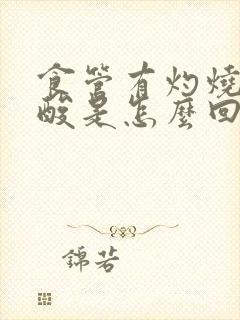 食管有灼燒
酸是怎麼回
錦若